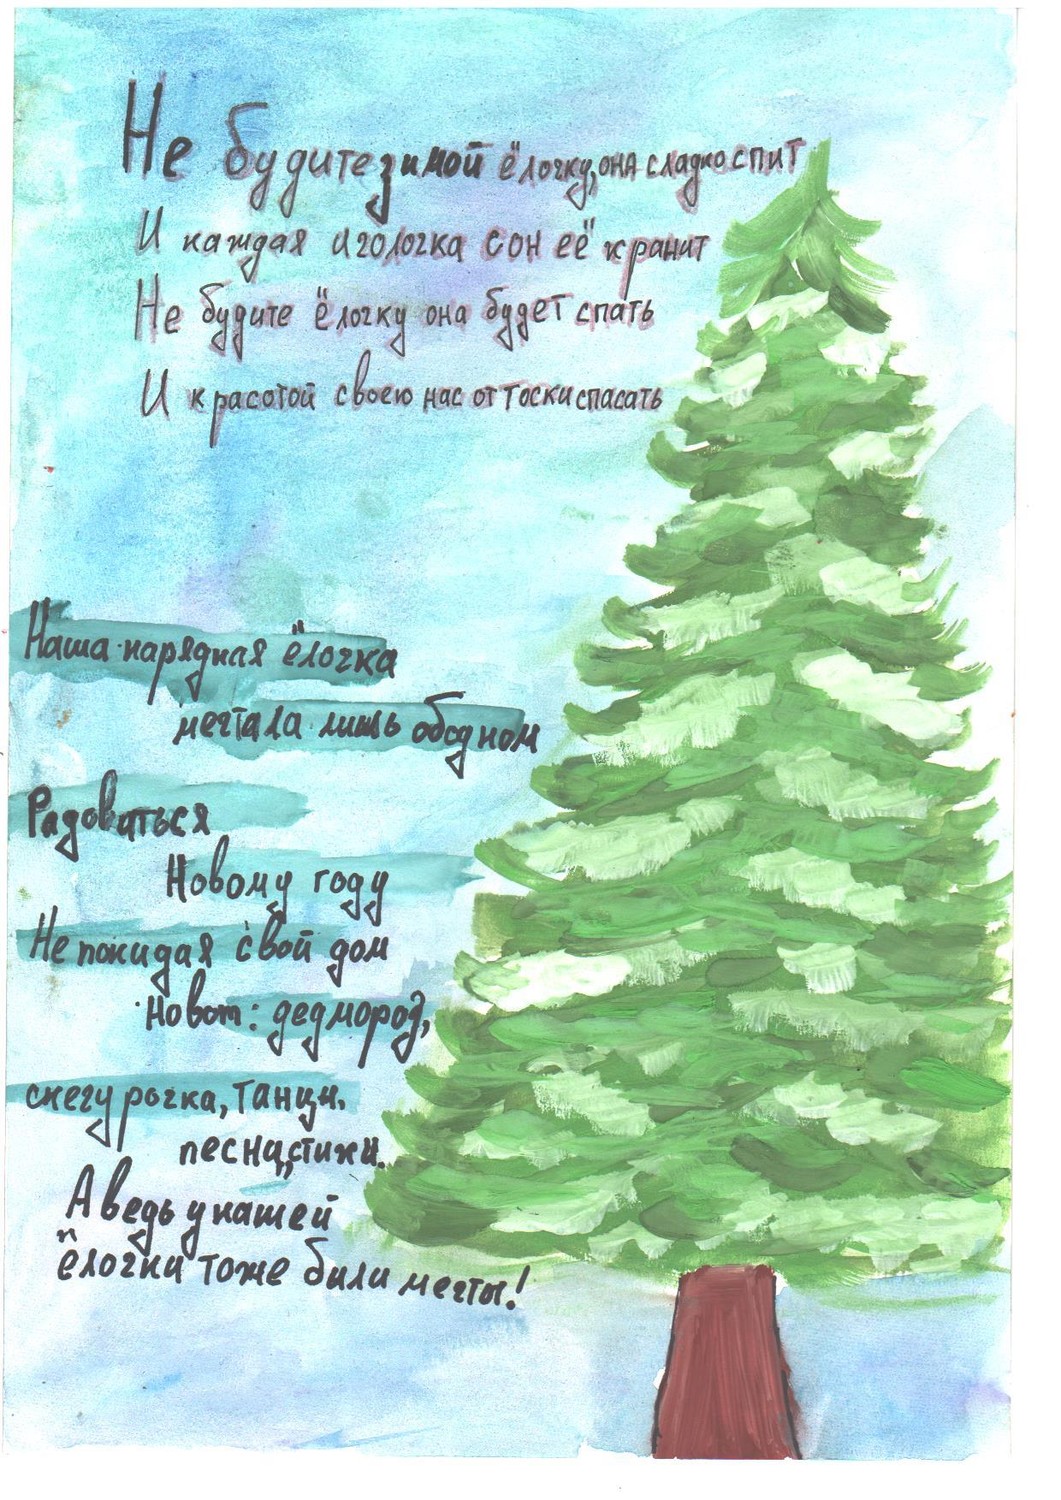 Не будите зимой ёлочку, она сладко спит
И каждая иголочка сон её хранит
Не будите ёлочку она будет спать
И красотой своею нас от тоски спасать
Наша нарядная ёлочка
мечтала лишь об одном
Радоваться
Новому году
Не покидая свой дом
Но вот: дед мороз,
снегурочка, танцы.
песни, стихи.
А ведь у нашей
ёлочки тоже били мечты!